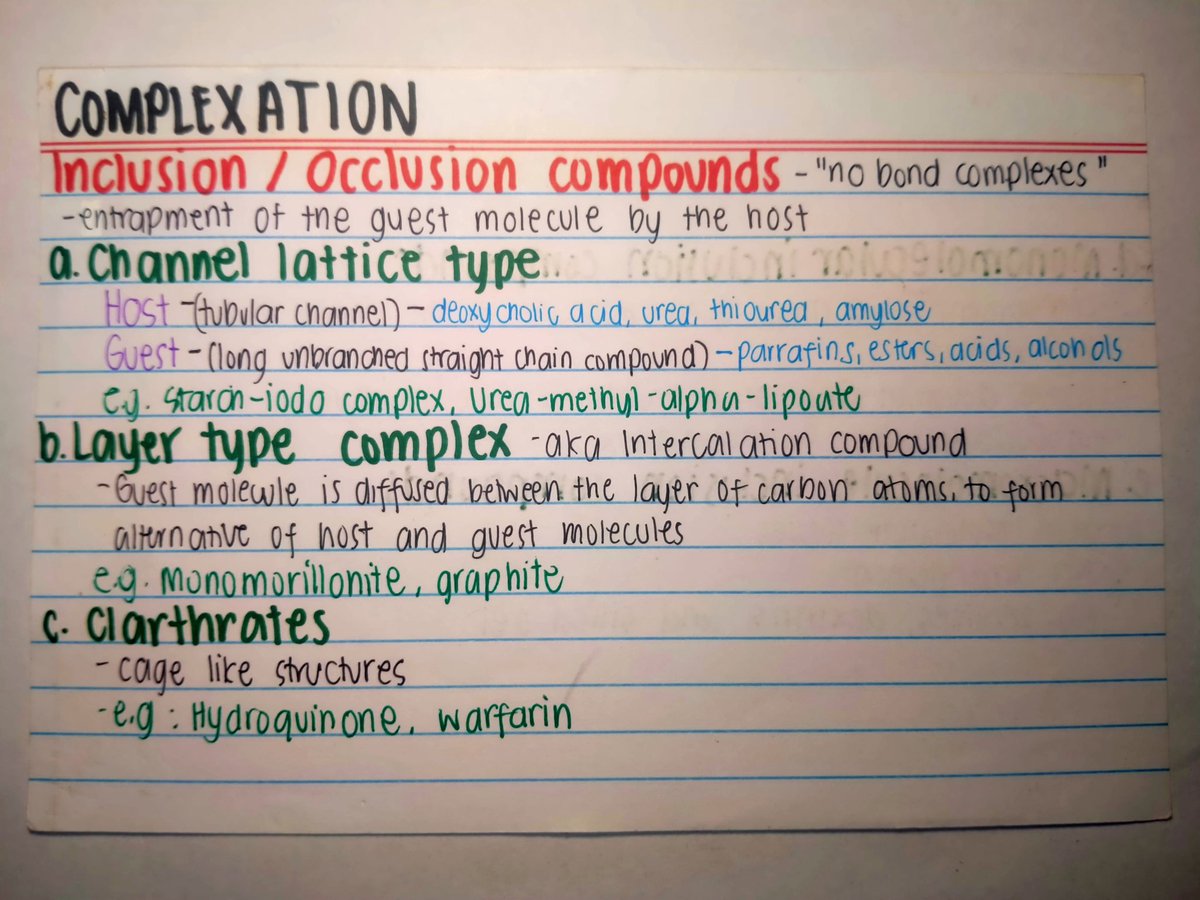 COMPLEXATION
Inclusion / Occlusion compounds - "no bond complexes"
-entrapment of the guest molecule by the host
a. Channel lattice type
Host -(tubular channel) - deoxycholic acid, urea, thiourea, amylose
Guest -(long unbranched straight chain compound) -parrafins, esters, acids, alcohols
e.g. Starch-iodo complex, Urea-methyl-alpha-lipoate
b. Layer type complex -aka Intercalation compound
-Guest molecule is diffused between the layer of carbon atoms, to form
alternative of host and guest molecules
e.g. Monomorillonite, graphite
c. Clarthrates
- cage like structures
-e.g : Hydroquinone, warfarin